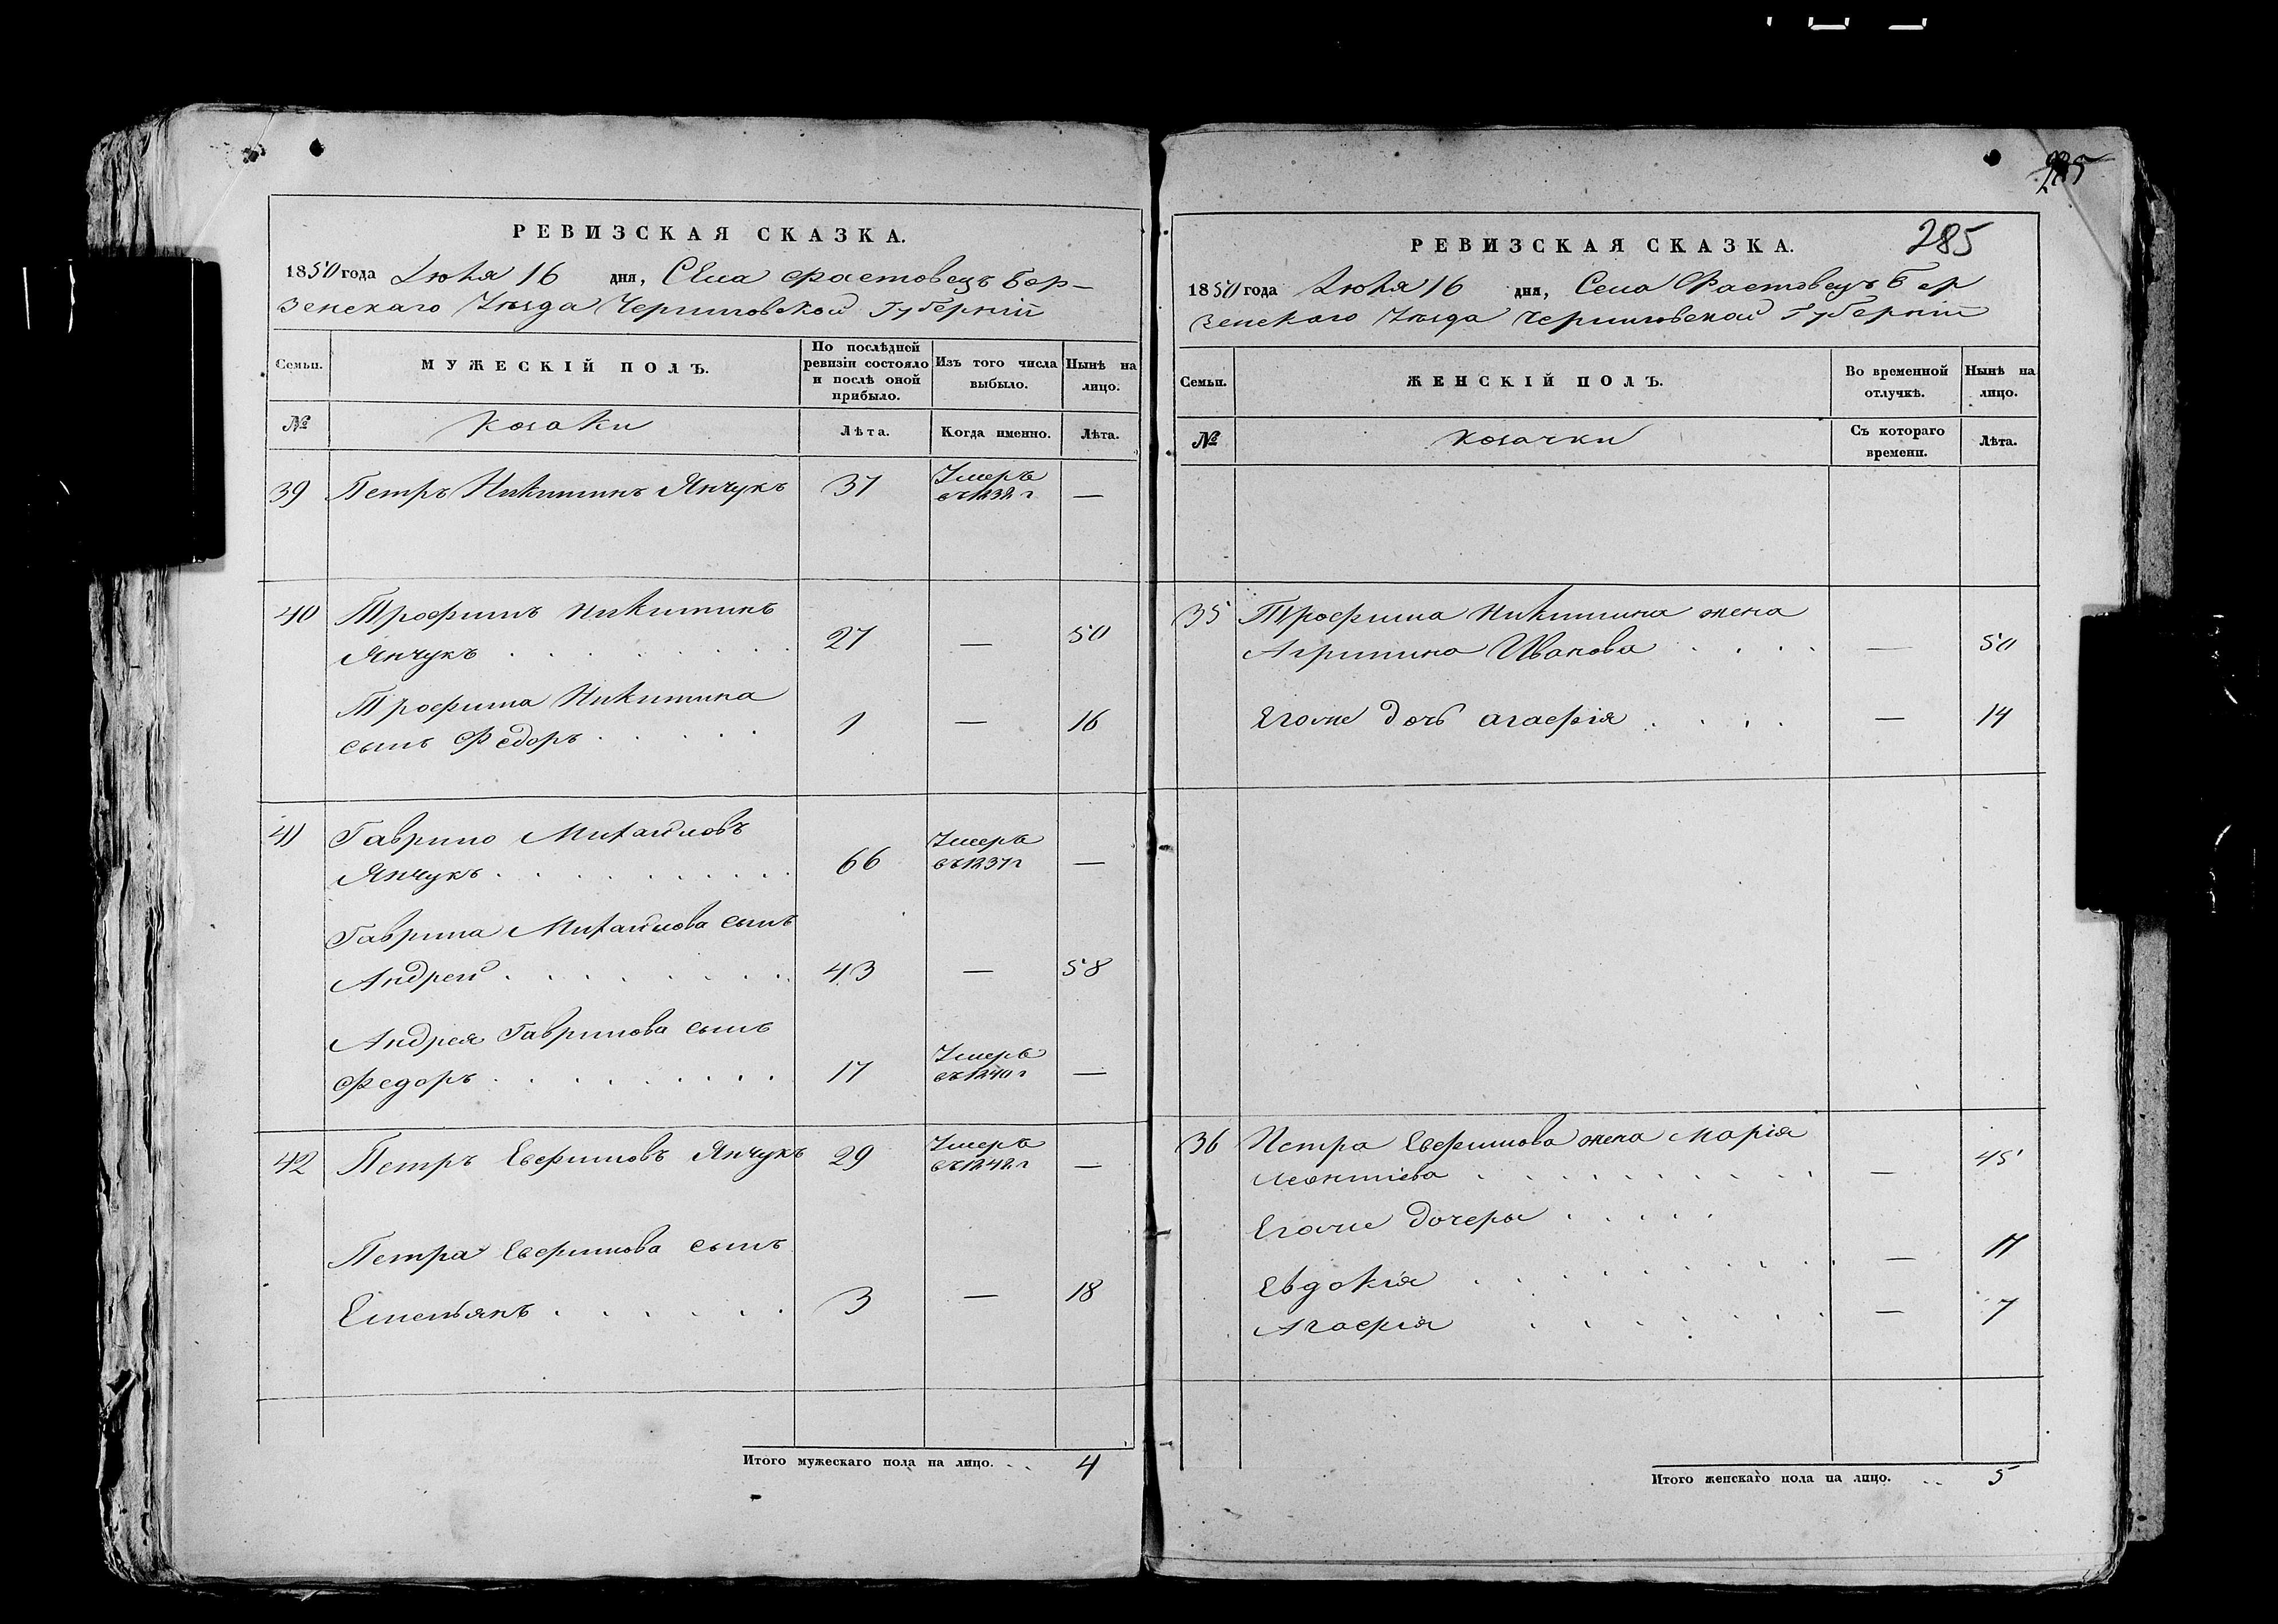 РЕВИЗСКАЯ СКАЗКА.
1850 года Июня 16 дня, Села Фастовецъ Бор-
зенскаго Уѣзда Черниговской Губерніи
Семьи.
МУЖЕСКІЙ ПОЛЪ.
По послѣдней ревизіи состояло и послѣ оной прибыло.
Изъ того числа выбыло.
Нынѣ на лицо.
№
козаки
Лѣта.
Когда именно.
Лѣта.
39 Петръ Никитинъ Янчукъ 37 Умеръ въ 1838 г —
40 Трофимъ Никитинъ
Янчукъ 27 — 50
Трофима Никитина
сынъ Федоръ 1 — 16
41 Гаврило Михайловъ
Янчукъ 66 Умеръ въ 1837 г —
Гаврила Михайлова сынъ
Андрей 43 — 58
Андрея Гаврилова сынъ
Федоръ 17 Умеръ въ 1840 г —
42 Петръ Евфимовъ Янчукъ 29 Умеръ въ 1848 г —
Петра Евфимова сынъ
Емельянъ 3 — 18
Итого мужескаго пола на лицо. 4
285
285
РЕВИЗСКАЯ СКАЗКА.
1850 года Июня 16 дня, Села Фастовецъ Бор
зенскаго Уѣзда Черниговской Губерніи
Семьи.
ЖЕНСКІЙ ПОЛЪ.
Во временной отлучкѣ.
Нынѣ на лицо.
№
козачки
Съ котораго времени.
Лѣта.
35 Трофима Никитина жена
Агрипина Иванова — 50
Егоже дочь Агафія — 14
36 Петра Евфимова жена Марія
Леонтіева — 45
Егоже дочеры
Евдокія — 17
Агафія — 7
Итого женскаго пола на лицо. 5